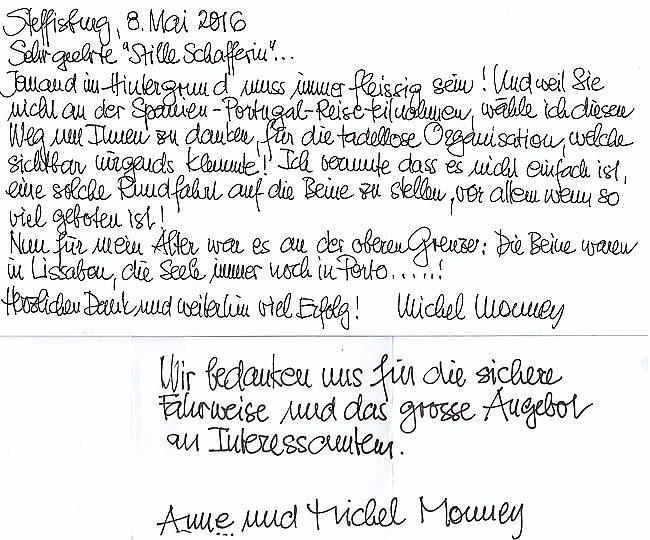 Steffisburg, 8. Mai 2016
Sehr geehrte "Stille Schafferin"...
Jemand im Hintergrund muss immer fleissig sein! Und weil Sie
nicht an der Spanien-Portugal-Reise teilnahmen, wähle ich diesen
Weg um Ihnen zu danken, für die tadellose Organisation, welche
sichtbar nirgends klemmte! Ich vermute dass es nicht einfach ist,
eine solche Rundfahrt auf die Beine zu stellen, vor allem wenn so
viel geboten ist!
Nun für mein Alter war es an der oberen Grenze: Die Beine waren
in Lissabon, die Seele immer noch in Porto.....!
Herzlichen Dank und weiterhin viel Erfolg! Michel Monney
Wir bedanken uns für die sichere
Fahrweise und das grosse Angebot
an Interessantem.
Anne und Michel Monney